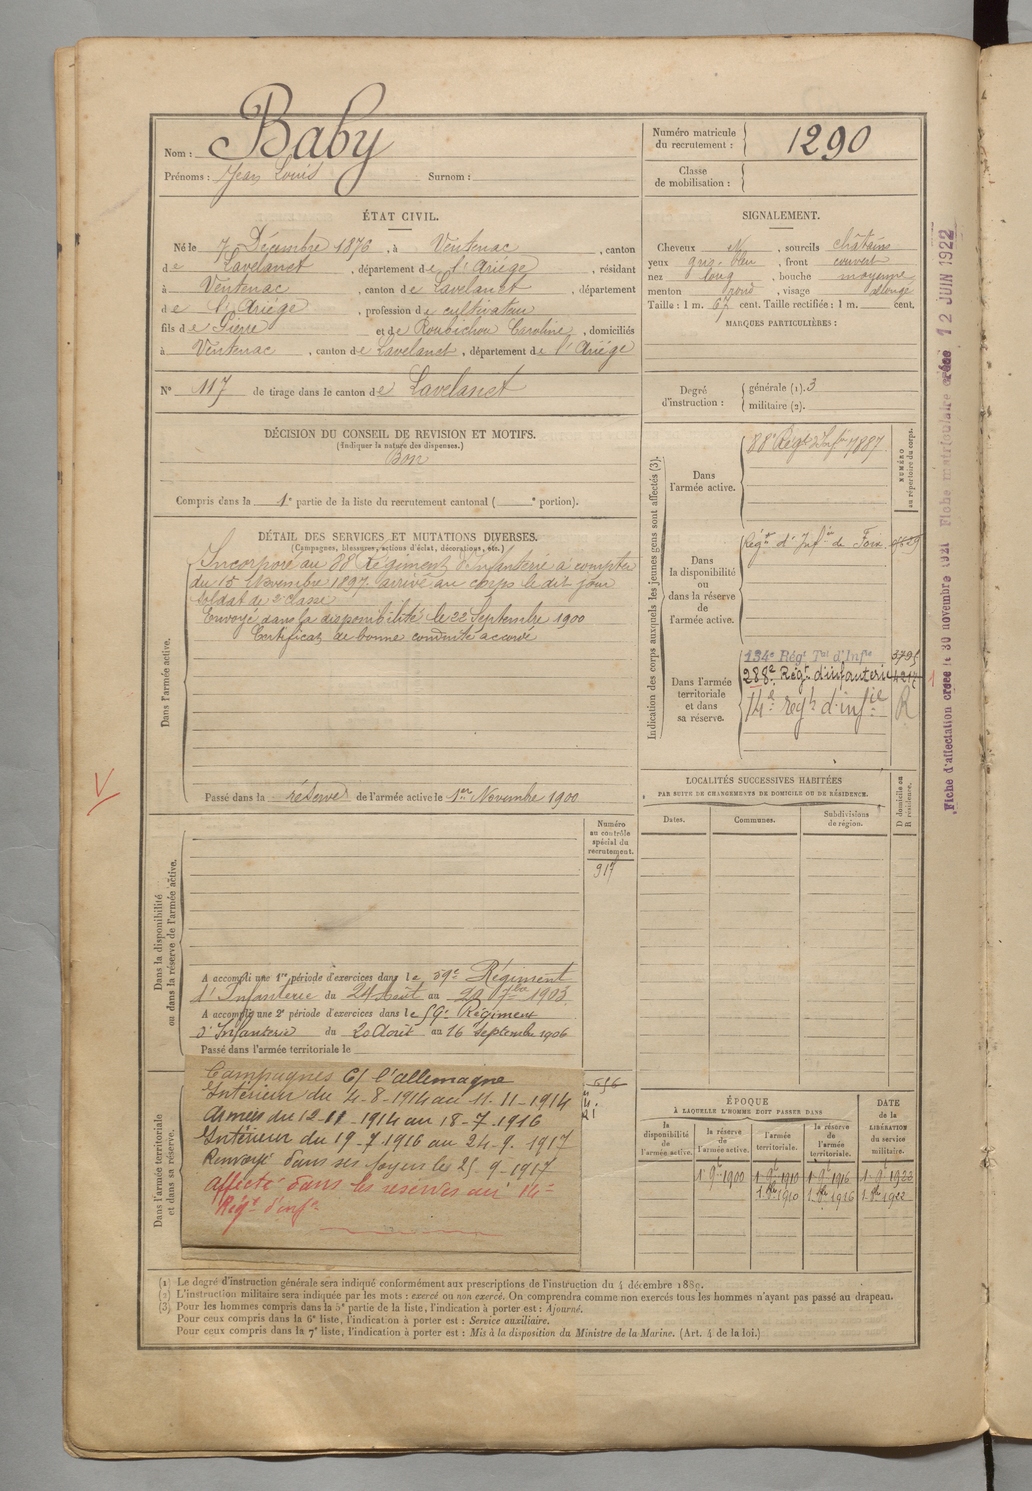 Nom : Baby
Prénoms : Jean Louis Surnom :
Numéro matricule
du recrutement : 1290
Classe
de mobilisation :
ÉTAT CIVIL.
Né le 7 Décembre 1876, à Ventenac, canton
de Lavelanet, département de l'Ariége, résidant
à Ventenac, canton de Lavelanet, département
de l'Ariége, profession de cultivateur
fils de Pierre et de Roubichou Caroline, domiciliés
à Ventenac, canton de Lavelanet, département de l'Ariége
N° 117 de tirage dans le canton de Lavelanet
SIGNALEMENT.
Cheveux N, sourcils châtains
yeux gris-bleu, front couvert
nez long, bouche moyenne
menton rond, visage allongé
Taille : 1 m. 67 cent. Taille rectifiée : 1 m. cent.
MARQUES PARTICULIÈRES :
Degré
d'instruction :
générale (1). 3
militaire (2).
DÉCISION DU CONSEIL DE REVISION ET MOTIFS.
(Indiquer la nature des dispenses.)
Bon
Compris dans la 1e partie de la liste du recrutement cantonal ( e portion).
DÉTAIL DES SERVICES ET MUTATIONS DIVERSES.
(Campagnes, blessures, actions d'éclat, décorations, etc.)
Dans l'armée active.
Incorporé au 88e Régiment d'Infanterie à compter
du 15 Novembre 1897 arrivé au corps le dit jour
soldat de 2e classe
Envoyé dans la disponibilité le 22 Septembre 1900
Certificat de bonne conduite accordé
Passé dans la réserve de l'armée active le 1er Novembre 1900
Indication des corps auxquels les jeunes gens sont affectés (3).
NUMÉRO
au répertoire du corps.
Dans
l'armée active.
88e Régt d'Infie 7887
Dans
la disponibilité
ou
dans la réserve
de
l'armée active.
Régt d'Infie de Foix
Dans l'armée
territoriale
et dans
sa réserve.
134e Régt Tal d'Infie 3795
288e Régt d'infanterie
14e regt d'infie R
Fiche d'affectation créée le 30 novembre 1921 Fiche matriculaire créée 12 JUIN 1922
LOCALITÉS SUCCESSIVES HABITÉES
PAR SUITE DE CHANGEMENTS DE DOMICILE OU DE RÉSIDENCE.
Dates. Communes. Subdivisions
de région.
D domicile ou
R résidence.
Numéro
au contrôle
spécial du
recrutement.
917
Dans la disponibilité
ou dans la réserve de l'armée active.
A accompli une 1re période d'exercices dans le 59e Régiment
d'Infanterie du 24 Août au 20 7bre 1903
A accompli une 2e période d'exercices dans le 59e Régiment
d'Infanterie du 20 Août au 16 Septembre 1906
Passé dans l'armée territoriale le
Dans l'armée territoriale
et dans sa réserve.
Campagnes C/ l'allemagne
Intérieur du 4-8-1914 au 11-11-1914
Armées du 12-11-1914 au 18-7-1916
Intérieur du 19-7-1916 au 24-9-1917
Renvoyé dans ses foyers les 25-9-1917
Affecté dans les réserves au 14e
Régt d'infie
ÉPOQUE
À LAQUELLE L'HOMME DOIT PASSER DANS
la
disponibilité
de
l'armée active.
la réserve
de
l'armée active.
l'armée
territoriale.
la réserve
de
l'armée
territoriale.
DATE
de la
LIBÉRATION
du service
militaire.
1 9bre 1900 1 9bre 1910 1 9bre 1916 1 9bre 1922
1 8bre 1910 1 8bre 1916 1 8bre 1922
(1) Le degré d'instruction générale sera indiqué conformément aux prescriptions de l'instruction du 4 décembre 1889.
(2) L'instruction militaire sera indiquée par les mots : exercé ou non exercé. On comprendra comme non exercés tous les hommes n'ayant pas passé au drapeau.
(3) Pour les hommes compris dans la 5e partie de la liste, l'indication à porter est : Ajourné.
Pour ceux compris dans la 6e liste, l'indication à porter est : Service auxiliaire.
Pour ceux compris dans la 7e liste, l'indication à porter est : Mis à la disposition du Ministre de la Marine. (Art. 4 de la loi.)